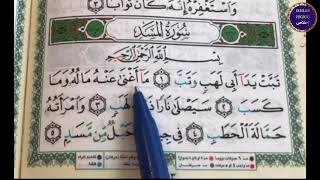 وَاسْتَغْفِرْهُ إِنَّهُ كَانَ تَوَّابًا ٣
سُورَةُ الْمَسَدِ
بِسْمِ اللَّهِ الرَّحْمَٰنِ الرَّحِيمِ
تَبَّتْ يَدَا أَبِي لَهَبٍ وَتَبَّ ١ مَا أَغْنَىٰ عَنْهُ مَالُهُ وَمَا
كَسَبَ ٢ سَيَصْلَىٰ نَارًا لَهَبٍ ٣ وَامْرَأَتُهُ
حَمَّالَةَ الْحَطَبِ ٤ فِي حَبْلٌ مِّن مَّسَدٍ ٥